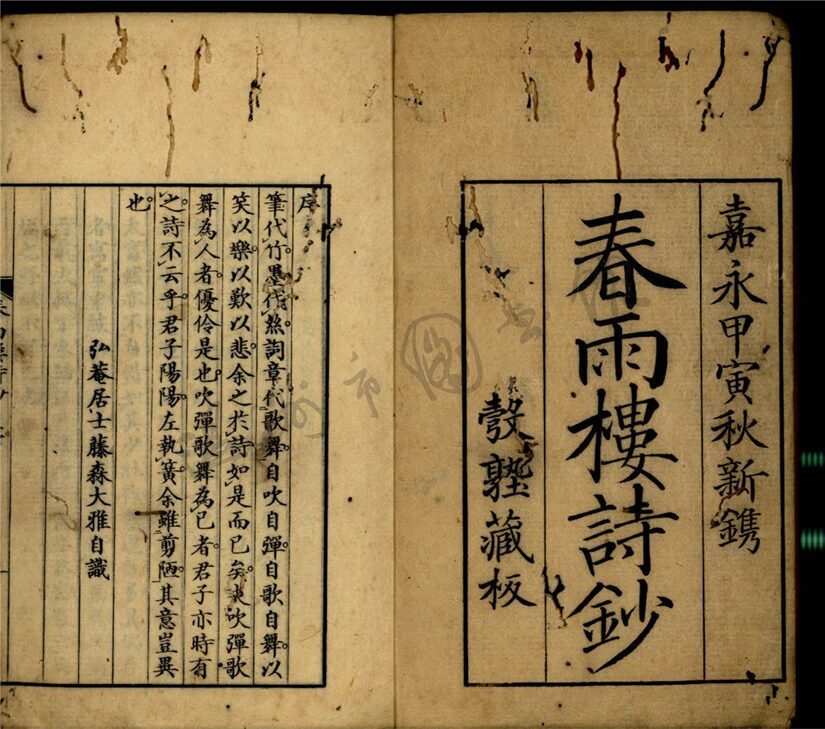 嘉永甲寅秋新鐫
春雨樓詩鈔
彀塾藏板
序
筆代竹。墨代絲。詞章代歌舞。自吹自彈。自歌自舞。以
笑以樂。以歎以悲。余之於詩。如是而已矣。夫吹彈歌
舞為人者。優伶是也。吹彈歌舞為己者。君子亦時有
之。詩不云乎。君子陽陽。左執簧。余雖剪陋。其意豈異
也。
弘菴居士藤森大雅自識